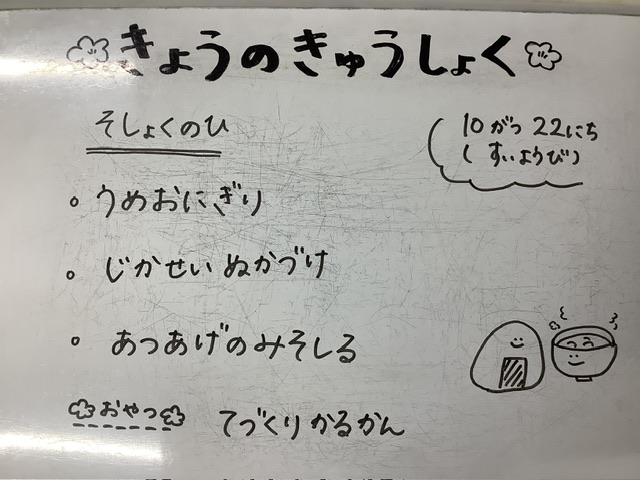 きょうのきゅうしょく
そしょくのひ
10がつ22にち
(すいようび)
うめおにぎり
じかせいぬかづけ
あつあげのみそしる
おやつ てづくりかるかん